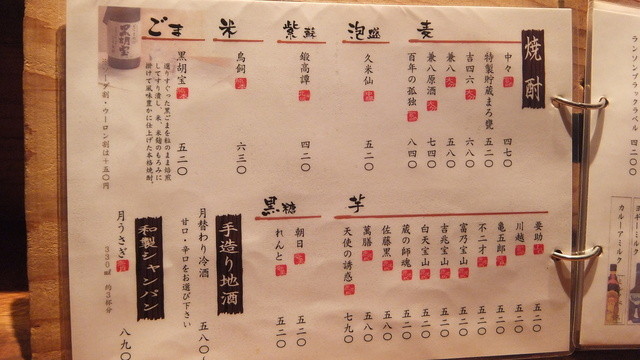 焼酎
麦
中々 四七〇
特製貯蔵まろ甕 五二〇
吉四六 六八〇
兼八 五八〇
兼八原酒 七四〇
百年の孤独 八四〇
泡盛
久米仙 五二〇
紫蘇
鍛高譚 四二〇
米
鳥飼 六三〇
ごま
黒胡宝 五二〇
選りすぐった黒ごまを粒のまま焙煎
してすり潰し、米、米麹のもろみに
掛けて風味豊かに仕上げた本格焼酎。
ーダ割・ウーロン割は+五〇円
芋
要助 五二〇
川越 五二〇
亀五郎 五二〇
不二才 五二〇
富乃宝山 五二〇
吉兆宝山 五二〇
白天宝山 五二〇
蔵の師魂 五二〇
佐藤黒 五八〇
萬膳 五八〇
天使の誘惑 七九〇
黒糖
朝日 五二〇
れんと 五二〇
手造り地酒
月替わり冷酒 五八〇
甘口・辛口をお選び下さい
和製シャンパン
月うさぎ 八九〇
330ml 約3杯分
ラベル 四二〇〇
カルーアミルク